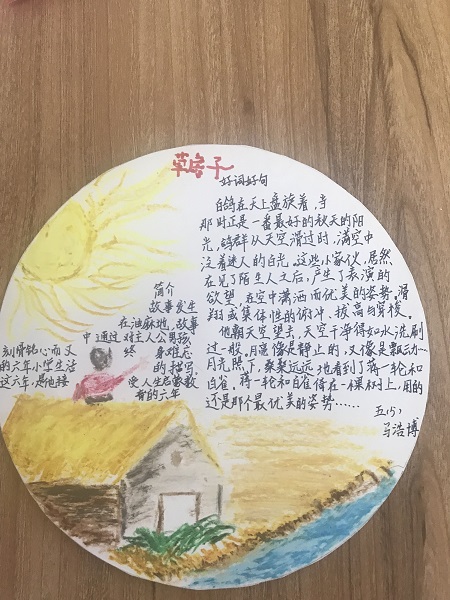 草房子
好词好句
白鸽在天上盘旋着，
那时正是一番最好的秋天的阳
光，鸽群从天空滑过时，满空中
泛着迷人的白光，这些小家伙，居然
在见了陌生人之后，产生了表演的
欲望，在空中潇洒而优美的姿势。滑
翔或集体性的俯冲，拔高与穿梭。
他朝天空望去，天空干净得如水洗刷
过一般。月亮像是静止的，又像是飘动
月光照下，桑桑远远地看到了蒋一轮和
白雀，蒋一轮和白雀倚在一棵树上，用的
还是那个最优美的姿势……
五（5）
马浩博
简介
故事发生
在油麻地，故事
中通过对主人公男孩
刻骨铭心而又 终 身难忘
的六年小学生活 的描写
这六年，是他接 受人生启蒙教
育的六年